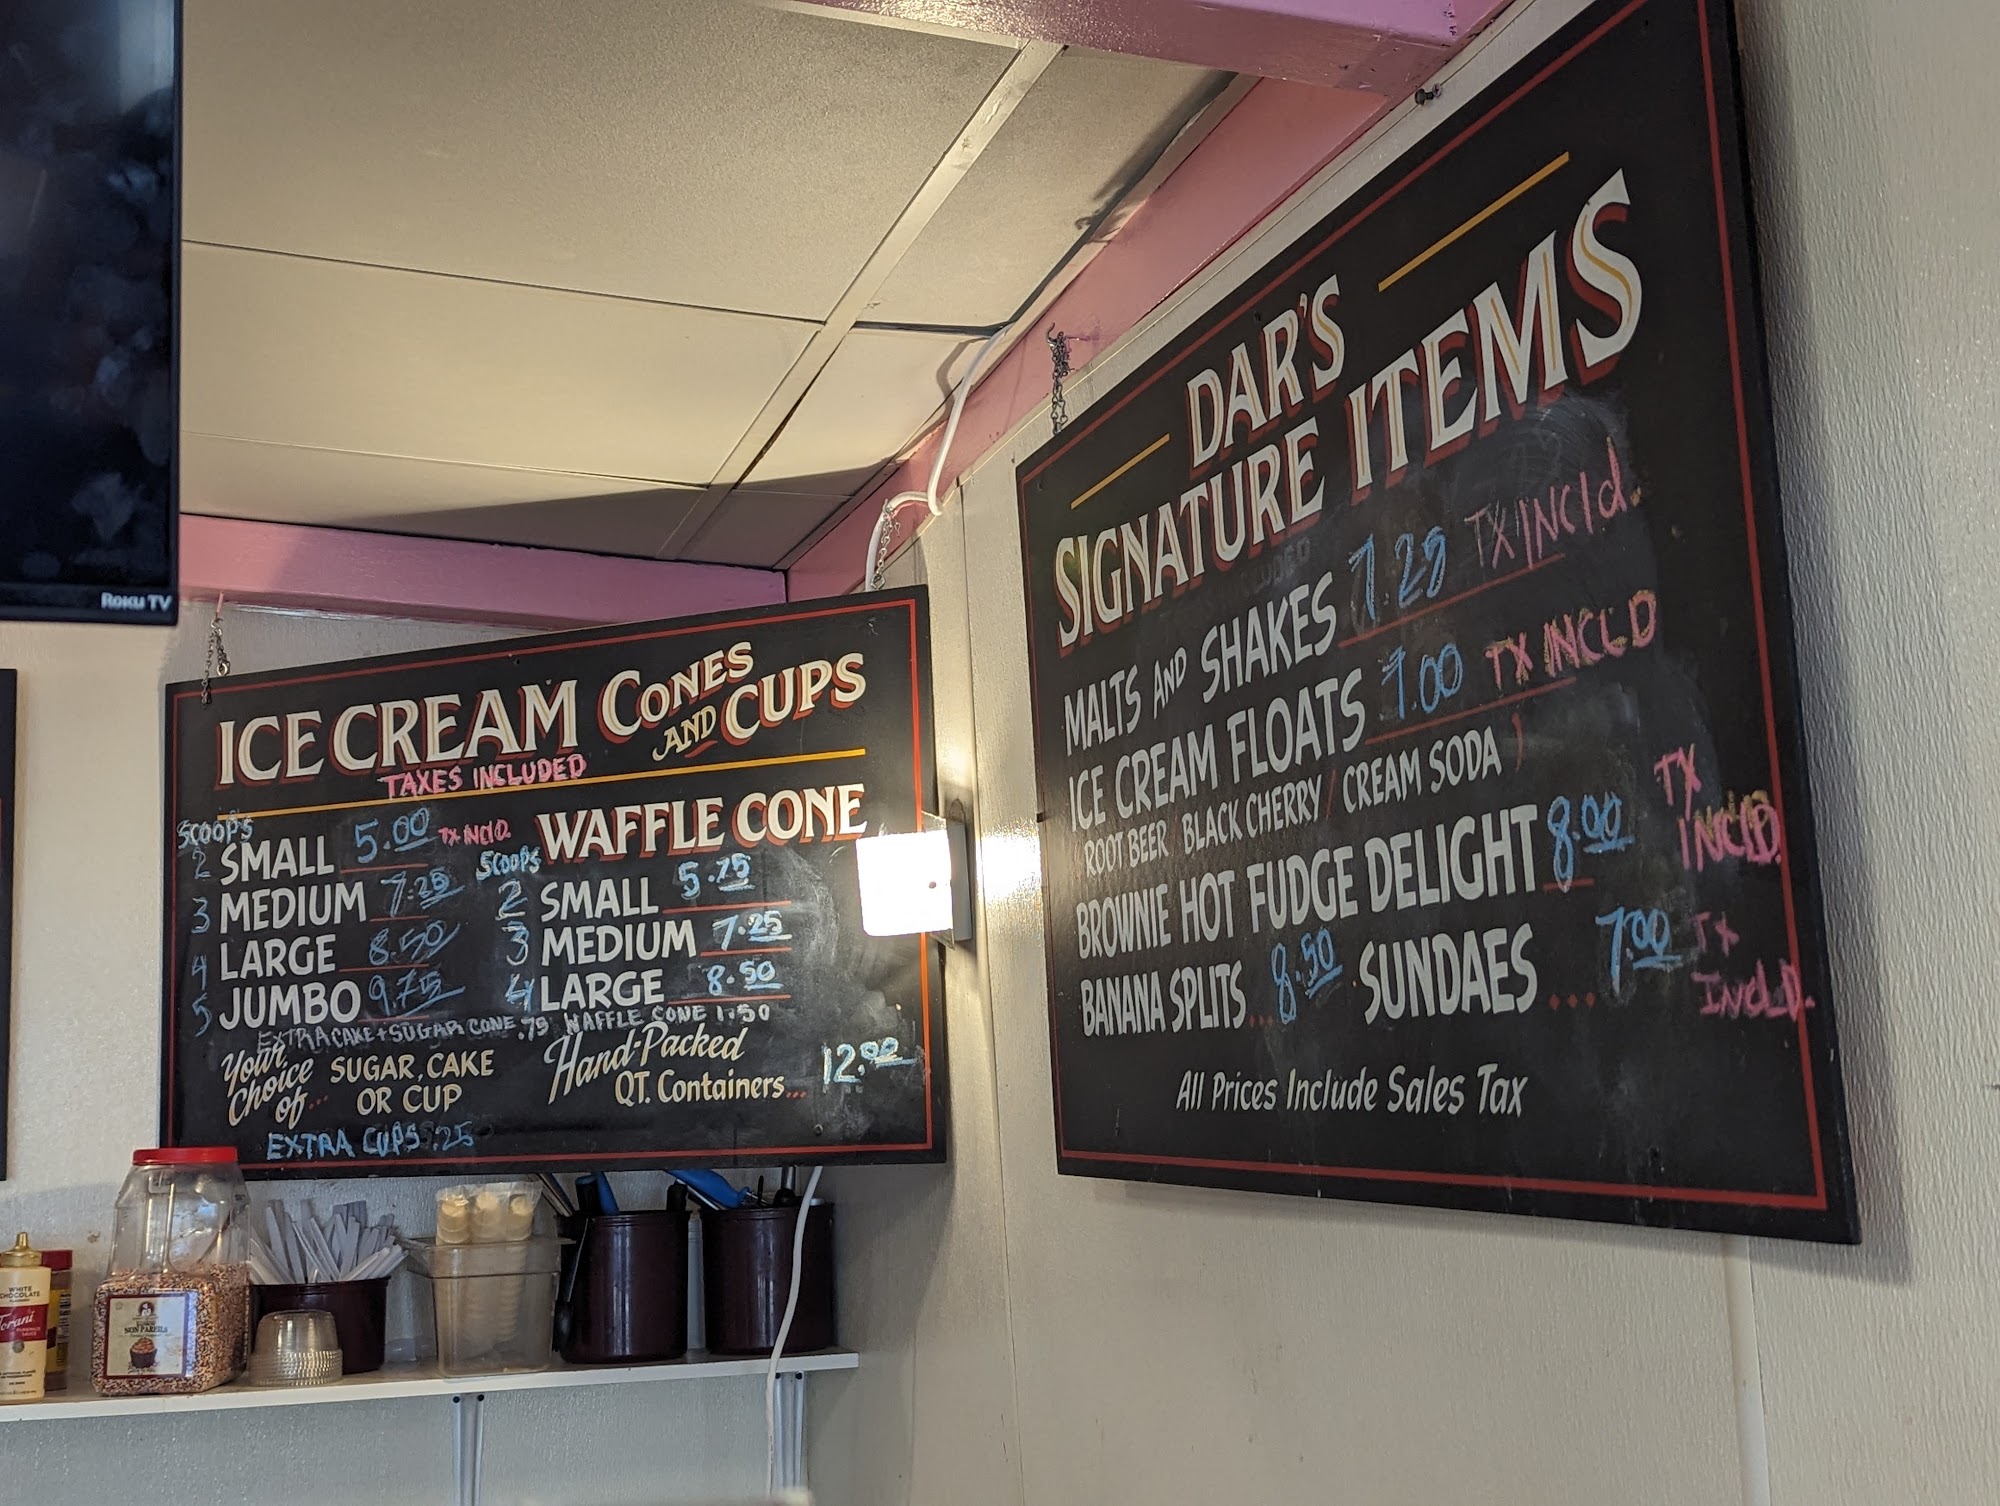 Roku TV
ICE CREAM CONES AND CUPS
TAXES INCLUDED
SCOOPS
2 SMALL 5.00 TX INCLD.
3 MEDIUM 7.25
4 LARGE 8.50
5 JUMBO 9.75
WAFFLE CONE
SCOOPS
2 SMALL 5.75
3 MEDIUM 7.25
4 LARGE 8.50
EXTRA CAKE + SUGAR CONE .75 WAFFLE CONE 1.50
Your Choice of... SUGAR, CAKE OR CUP
Hand-Packed
QT. Containers... 12.00
EXTRA CUPS .25
DAR'S
SIGNATURE ITEMS
MALTS AND SHAKES 7.25 TX INCld.
ICE CREAM FLOATS 7.00 TX INCLD
ROOT BEER BLACK CHERRY / CREAM SODA )
BROWNIE HOT FUDGE DELIGHT 8.00 TX INCLD.
BANANA SPLITS... 8.50 SUNDAES... 7.00 TX INCLD.
All Prices Include Sales Tax
WHITE
CHOCOLATE
Torani
NON PAREILS